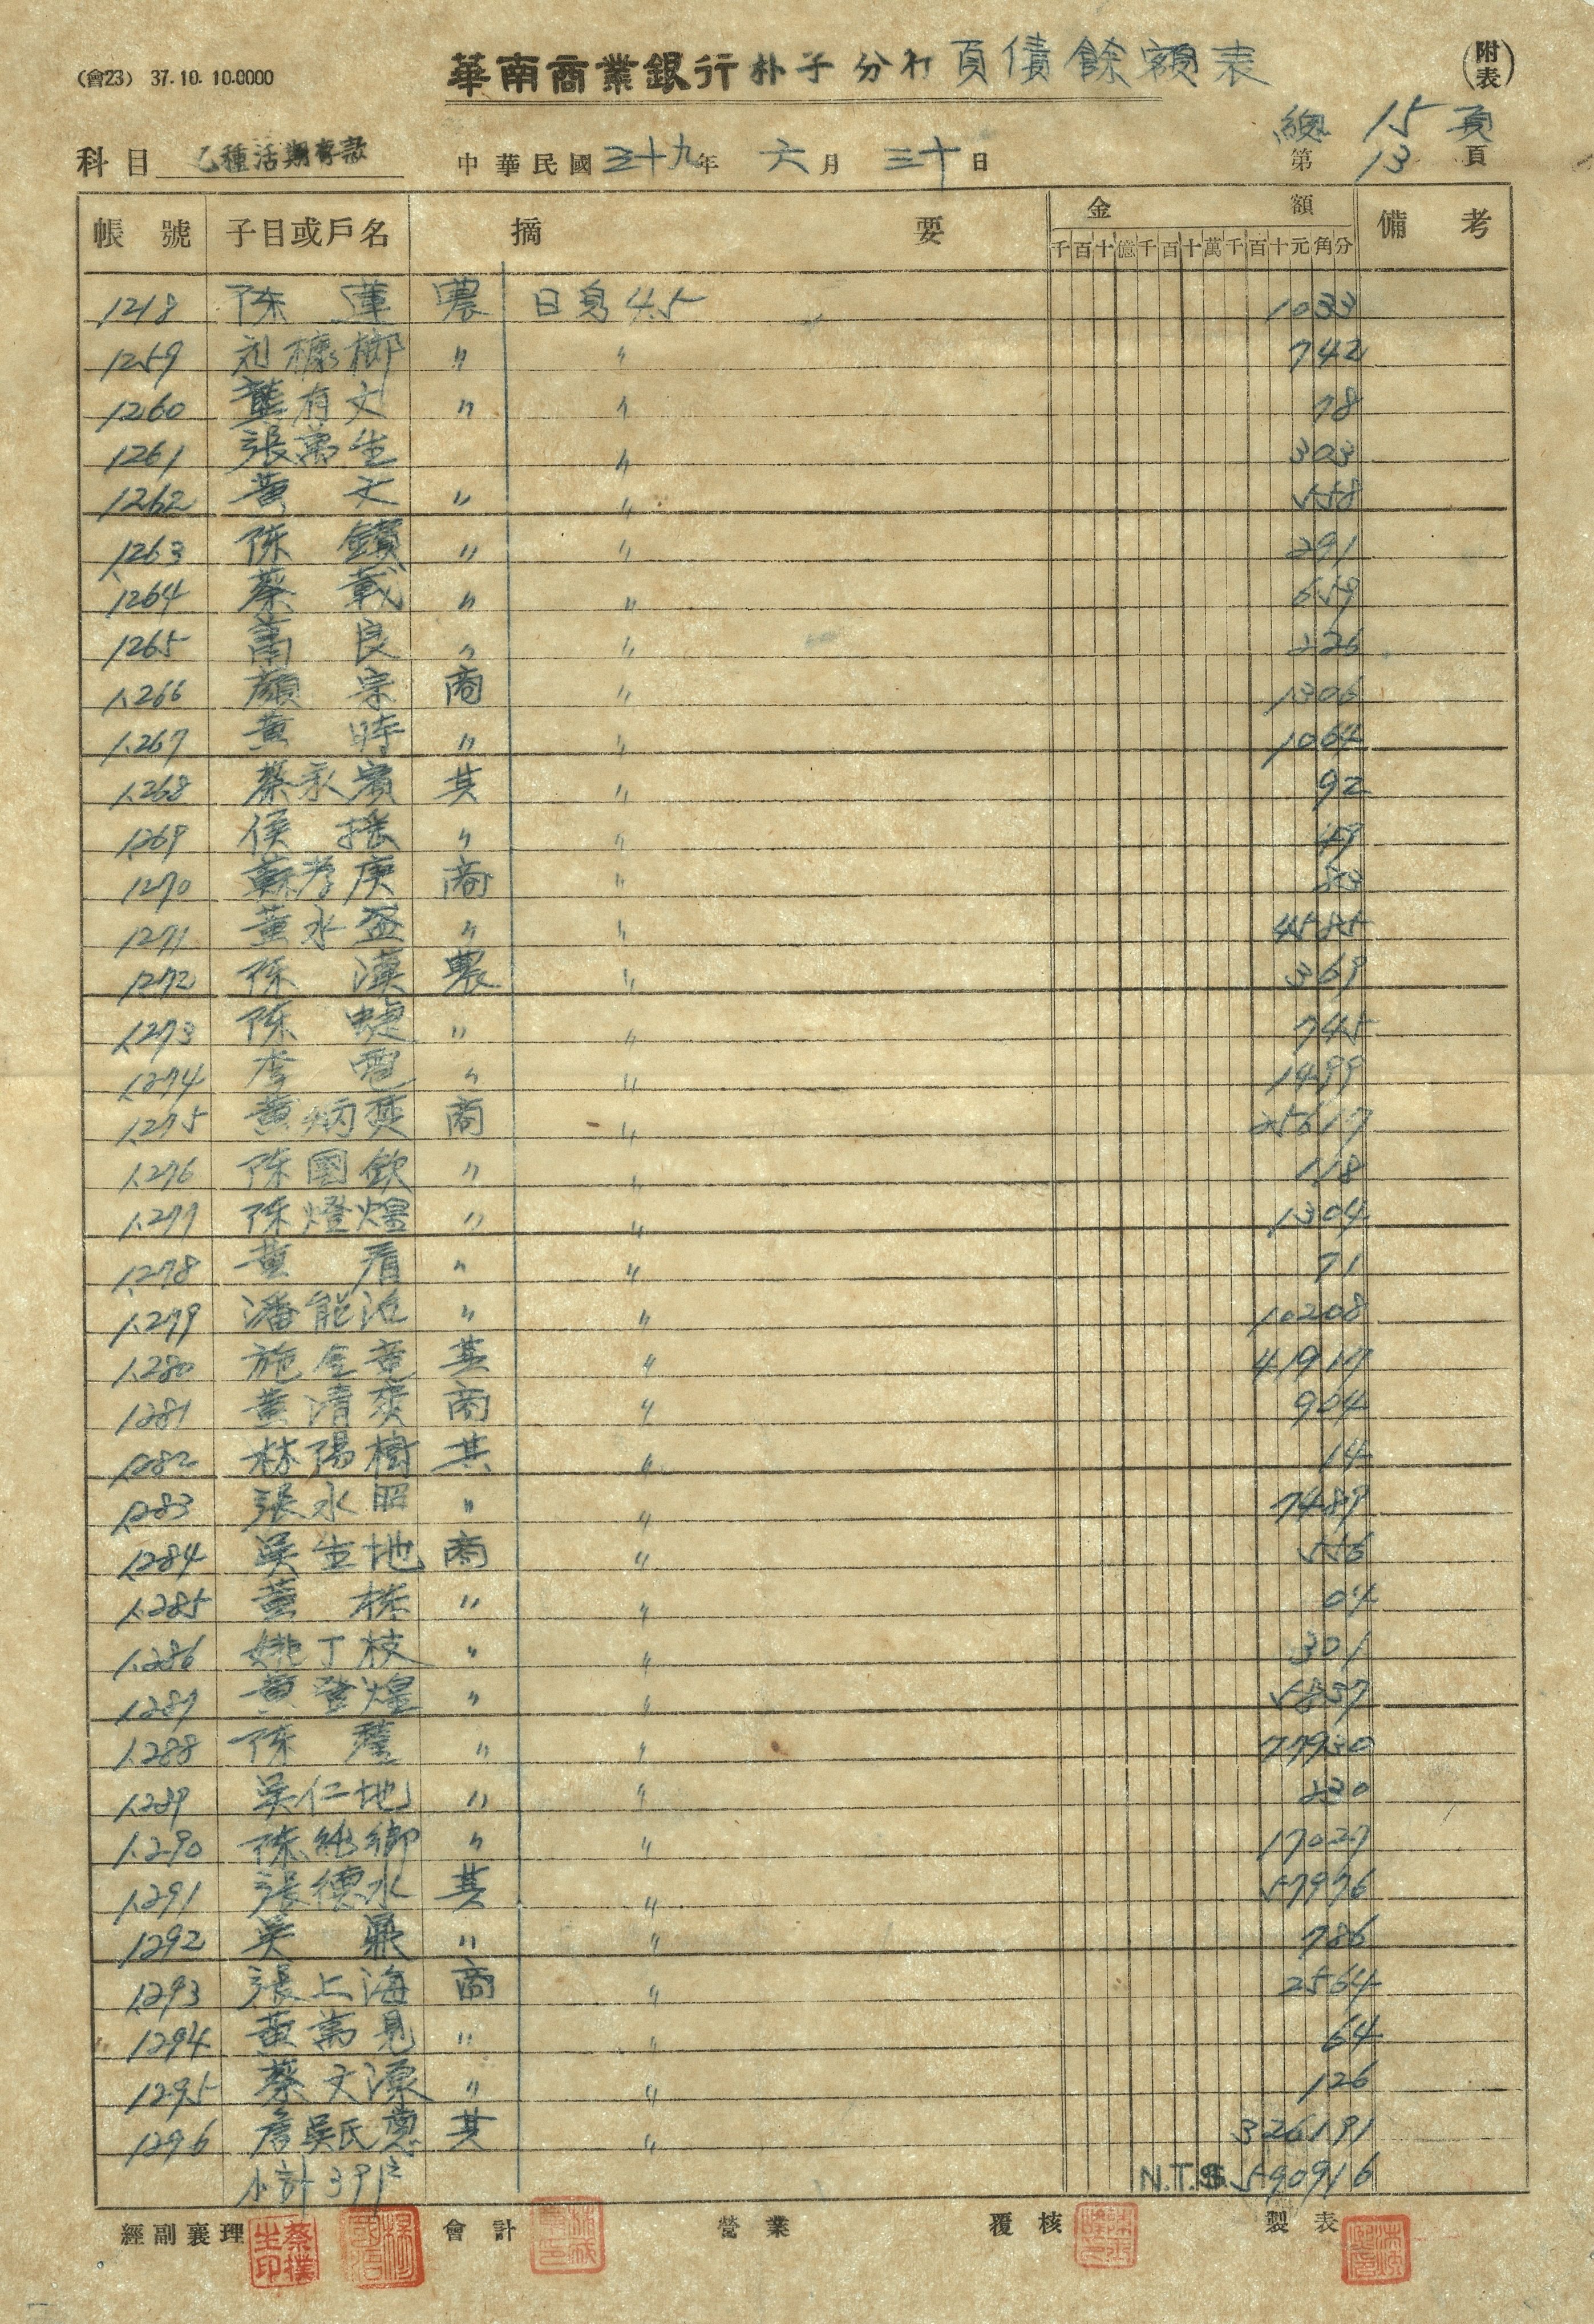 (會23) 37.10.10.0000
華南商業銀行朴子分行負債餘額表
(附表)
總 15 頁
科目 乙種活期存款 中華民國三十九年 六月 三十日 第 13 頁
帳號 子目或戶名 摘要 金額 備考
千百十億千百十萬千百十元角分
1218 陳蓮 農 日息4.5 1033
1259 刘榔 〃 〃 742
1260 龔有文 〃 〃 78
1261 張萬生 〃 303
1262 黃文 〃 〃 558
1263 陳鑽 〃 〃 291
1264 蔡戴 〃 〃 659
1265 蕭良 〃 〃 226
1266 顏宗 商 〃 1306
1267 黃時 〃 〃 1064
1268 蔡永賓 其 〃 92
1269 侯振 〃 〃 49
1270 蘇考庚 商 〃 53
1271 董水盛 〃 〃 4585
1272 陳漢 農 〃 369
1273 陳 〃 〃 745
1274 李 〃 〃 1499
1275 黃炳焚 商 〃 25617
1276 陳國欽 〃 〃 118
1277 陳燈煌 〃 〃 1304
1278 黃看 〃 〃 71
1279 潘能 〃 〃 10208
1280 施金童 其 〃 41917
1281 黃清 商 〃 904
1282 林陽樹 其 〃 14
1283 張水昭 〃 〃 7489
1284 吳生地 商 〃 556
1285 董棕 〃 〃 04
1286 姚丁枝 〃 〃 301
1287 黃登煌 〃 〃 5837
1288 陳 〃 〃 77930
1289 吳仁地 〃 〃 230
1290 陳純鄉 〃 〃 17027
1291 張德水 其 〃 57976
1292 吳鼎 〃 〃 786
1293 張上海 商 〃 2564
1294 黃萬見 〃 〃 64
1295 蔡文源 〃 〃 126
1296 詹吳氏 其 〃 326191
小計391户 N.T.$ 590916
經副襄理 會計 營業 覆核 製表
蔡撲生印